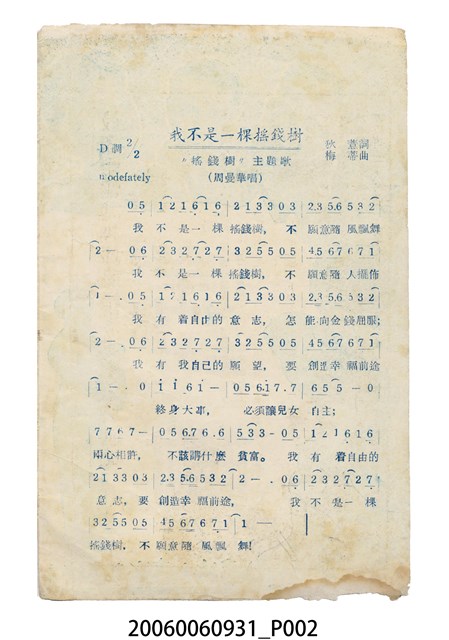 我不是一棵搖錢樹
D調 2/2
狄薏詞
梅蒂曲
"搖錢樹"主題歌
(周曼華唱)
modefately
0 5 | 1 2 1 6 1 6 | 2 1 3 3 0 3 | 2.3 5.6 5 3 2 |
我 不是一棵 搖錢樹, 不 願意隨風飄舞
2 — . 0 6 | 2 3 2 7 2 7 | 3 2 5 5 0 5 | 4 5 6 7 6 7 1 |
我 不是一棵 搖錢樹, 不 願意隨人擺佈
1 — . 0 5 | 1 2 1 6 1 6 | 2 1 3 3 0 3 | 2.3 5.6 5 3 2 |
我 有着自由的 意志, 怎 能向金錢屈服;
2 — . 0 6 | 2 3 2 7 2 7 | 3 2 5 5 0 5 | 4 5 6 7 6 7 1 |
我 有我自己的 願望, 要 創造幸福前途
1 — . 0 | 1 1 6 1 — | 0 5 6 1 7. 7 | 6 5 5 — 0
終身大事, 必須讓兒女 自主;
7 7 6 7 — | 0 5 6.7 6. 6 | 5 3 3 — 0 5 | 1 2 1 6 1 6 |
兩心相許, 不該講什麼 貧富。 我 有着自由的
2 1 3 3 0 3 | 2.3 5.6 5 3 2 | 2 — . 0 6 | 2 3 2 7 2 7 |
意志, 要 創造幸福前途, 我 不是一棵
3 2 5 5 0 5 | 4 5 6 7 6 7 1 | 1 — |
搖錢樹. 不 願意隨風飄舞!
20060060931_P002